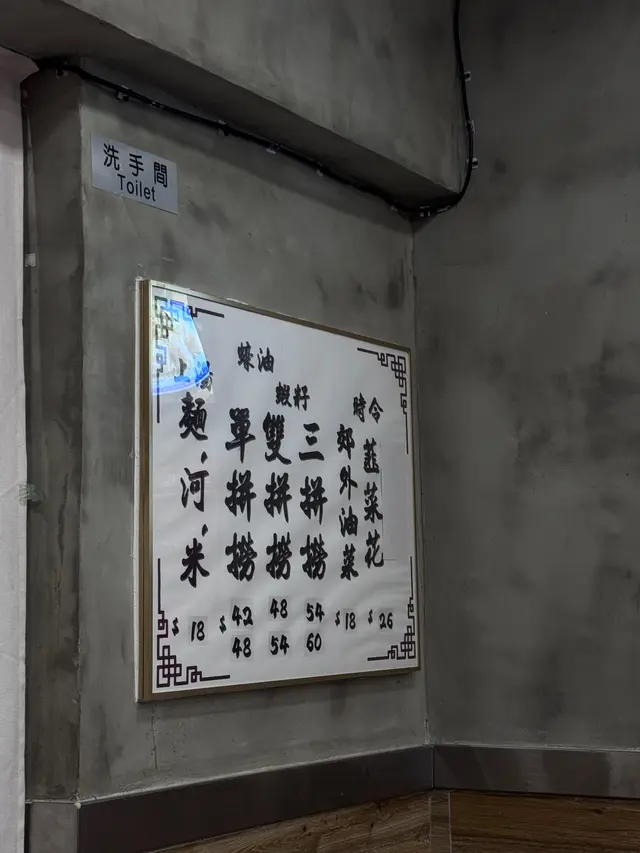 洗手間
Toilet
麵,河,米
$18
蠔油
蝦籽
單拼撈
$42
48
雙拼撈
48
54
三拼撈
54
60
時令
郊外油菜
$18
韮菜花
$26